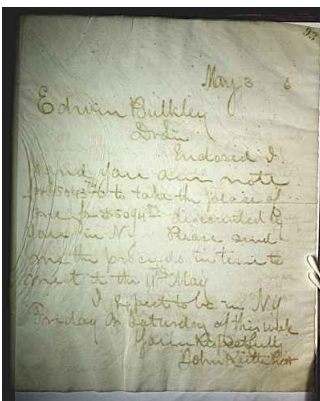 93
May 3 6
Edwin Bulkley
Dr Sir
Enclosed I
hand you our note
for to take the place of
one for $5094 discounted by
you in NY Please send
me the proceeds in time to
meet it the 11th May
I expect to be in NY
Friday or Saturday of this week
Yours Respectfully
John Keith